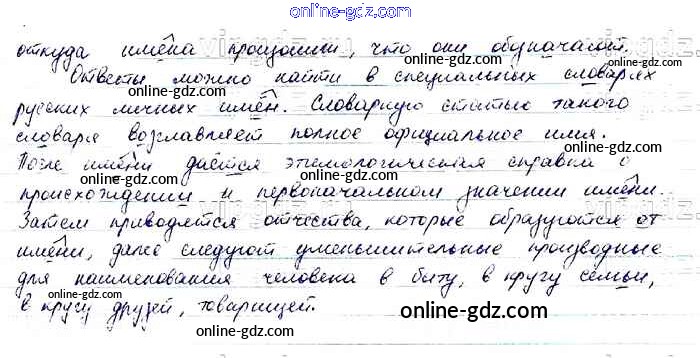 online-gdz.com
откуда имена произошли, что они обозначают.
online-gdz.com
Ответы можно найти в специальных словарях
русских личных имён. Словарную статью такого
словаря возглавляет полное официальное имя.
После имени даётся этимологическая справка о
происхождении и первоначальном значении имени.
Затем приводятся отчества, которые образуются от
имени, далее следуют уменьшительные производные
для наименования человека в быту, в кругу семьи,
online-gdz.com
в кругу друзей, товарищей.
online-gdz.com
online-gdz.com
online-gdz.com